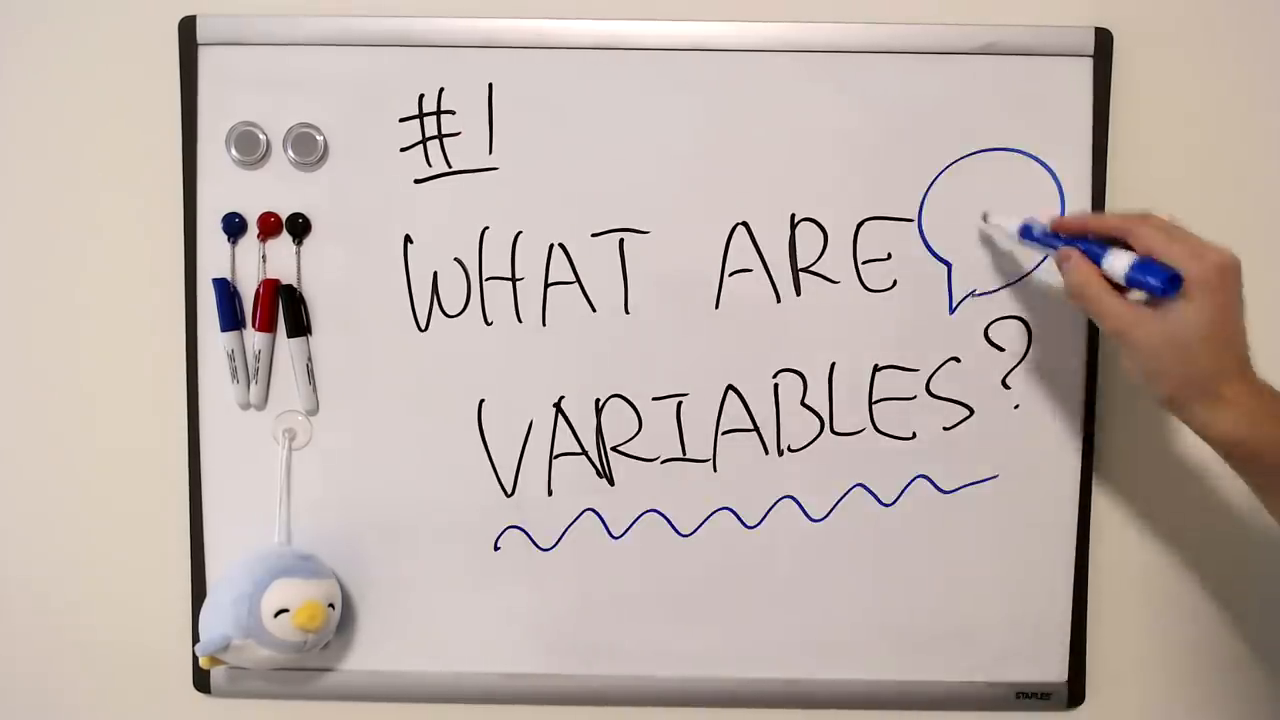 #1
WHAT ARE
VARIABLES?
STAPLES